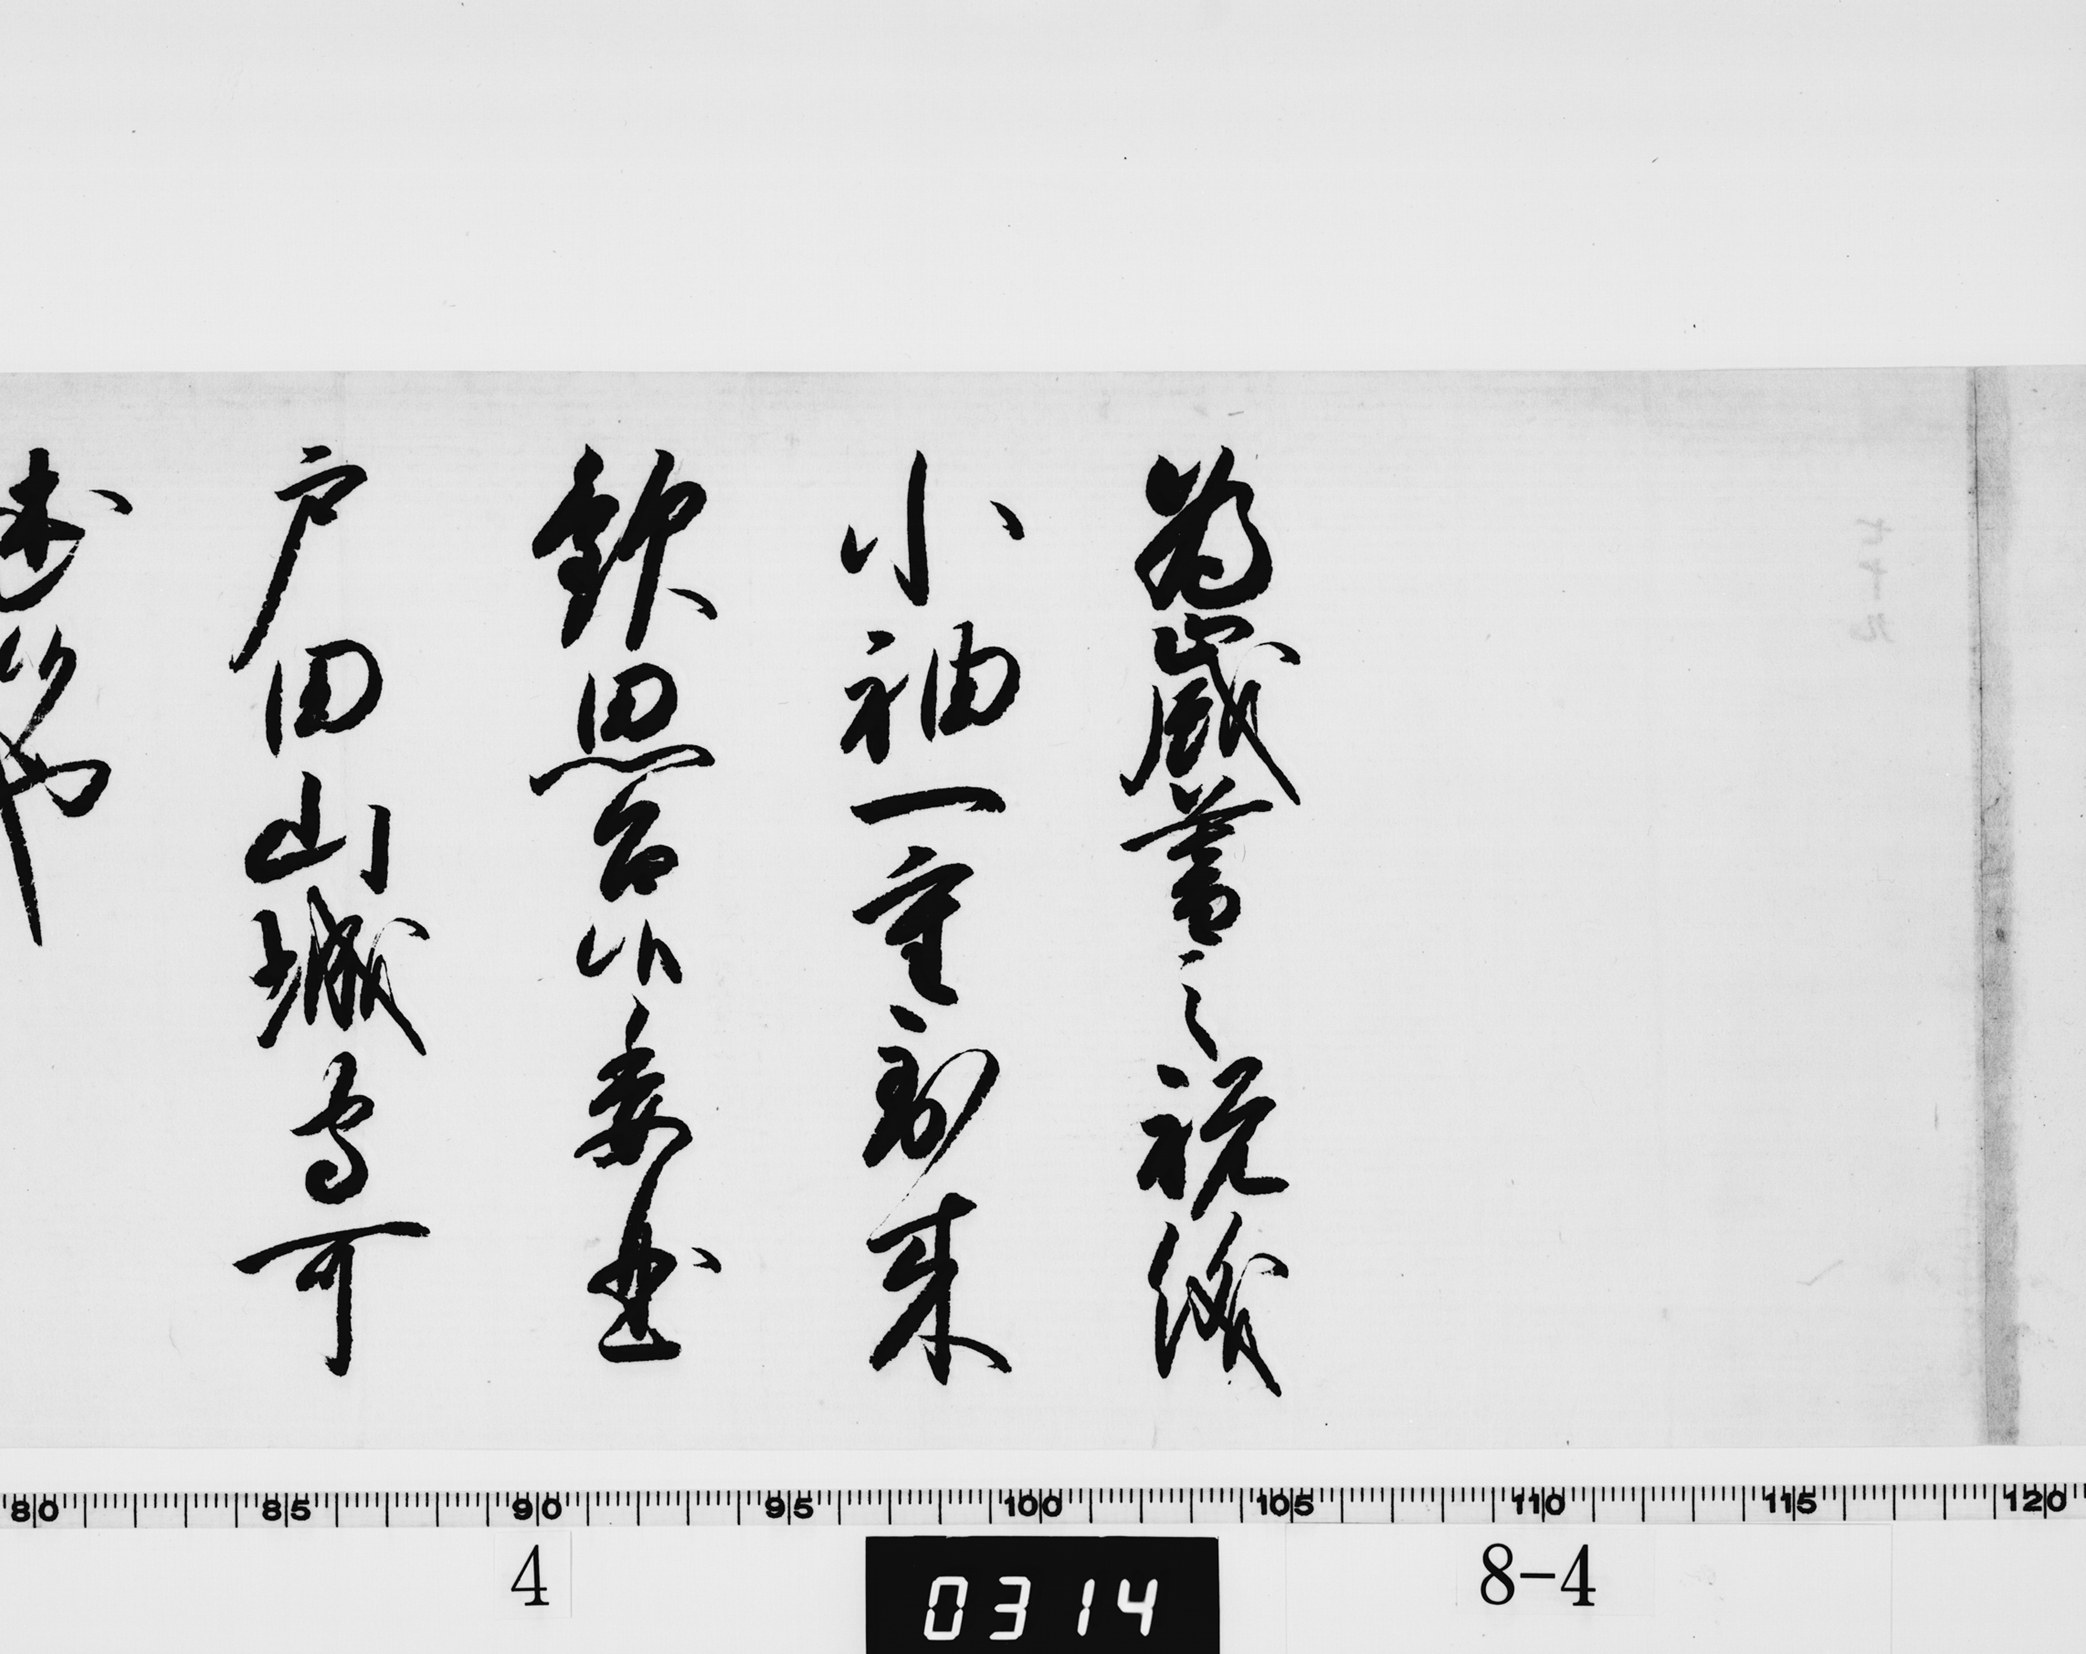 為歳暮之祝儀
小袖一重到来
歓思召候委曲
戸田山城守可
述候也
80 85 90 95 100 105 110 115 120
4
0314
8-4